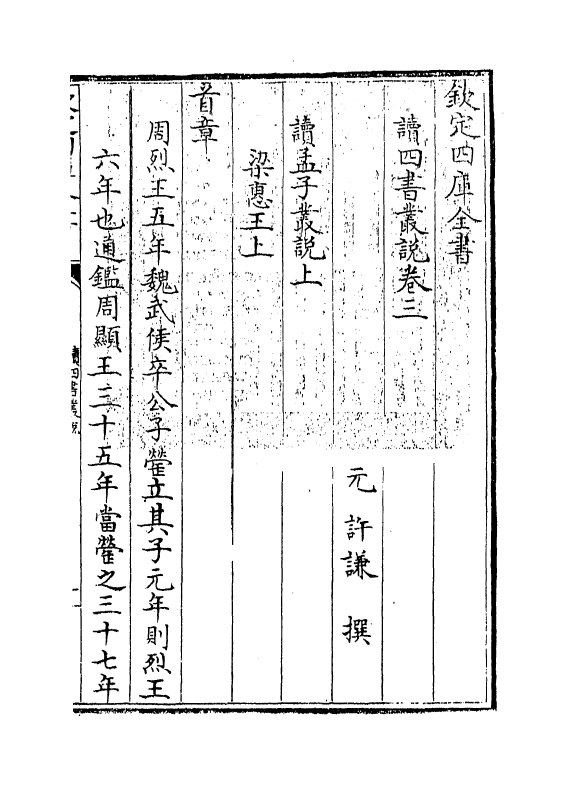 欽定四庫全書
讀四書叢說卷三
元 許謙 撰
讀孟子叢說上
梁惠王上
首章
周烈王五年魏武侯卒公子罃立其子元年則烈王
六年也通鑑周顯王三十五年當罃之三十七年
讀四書叢說